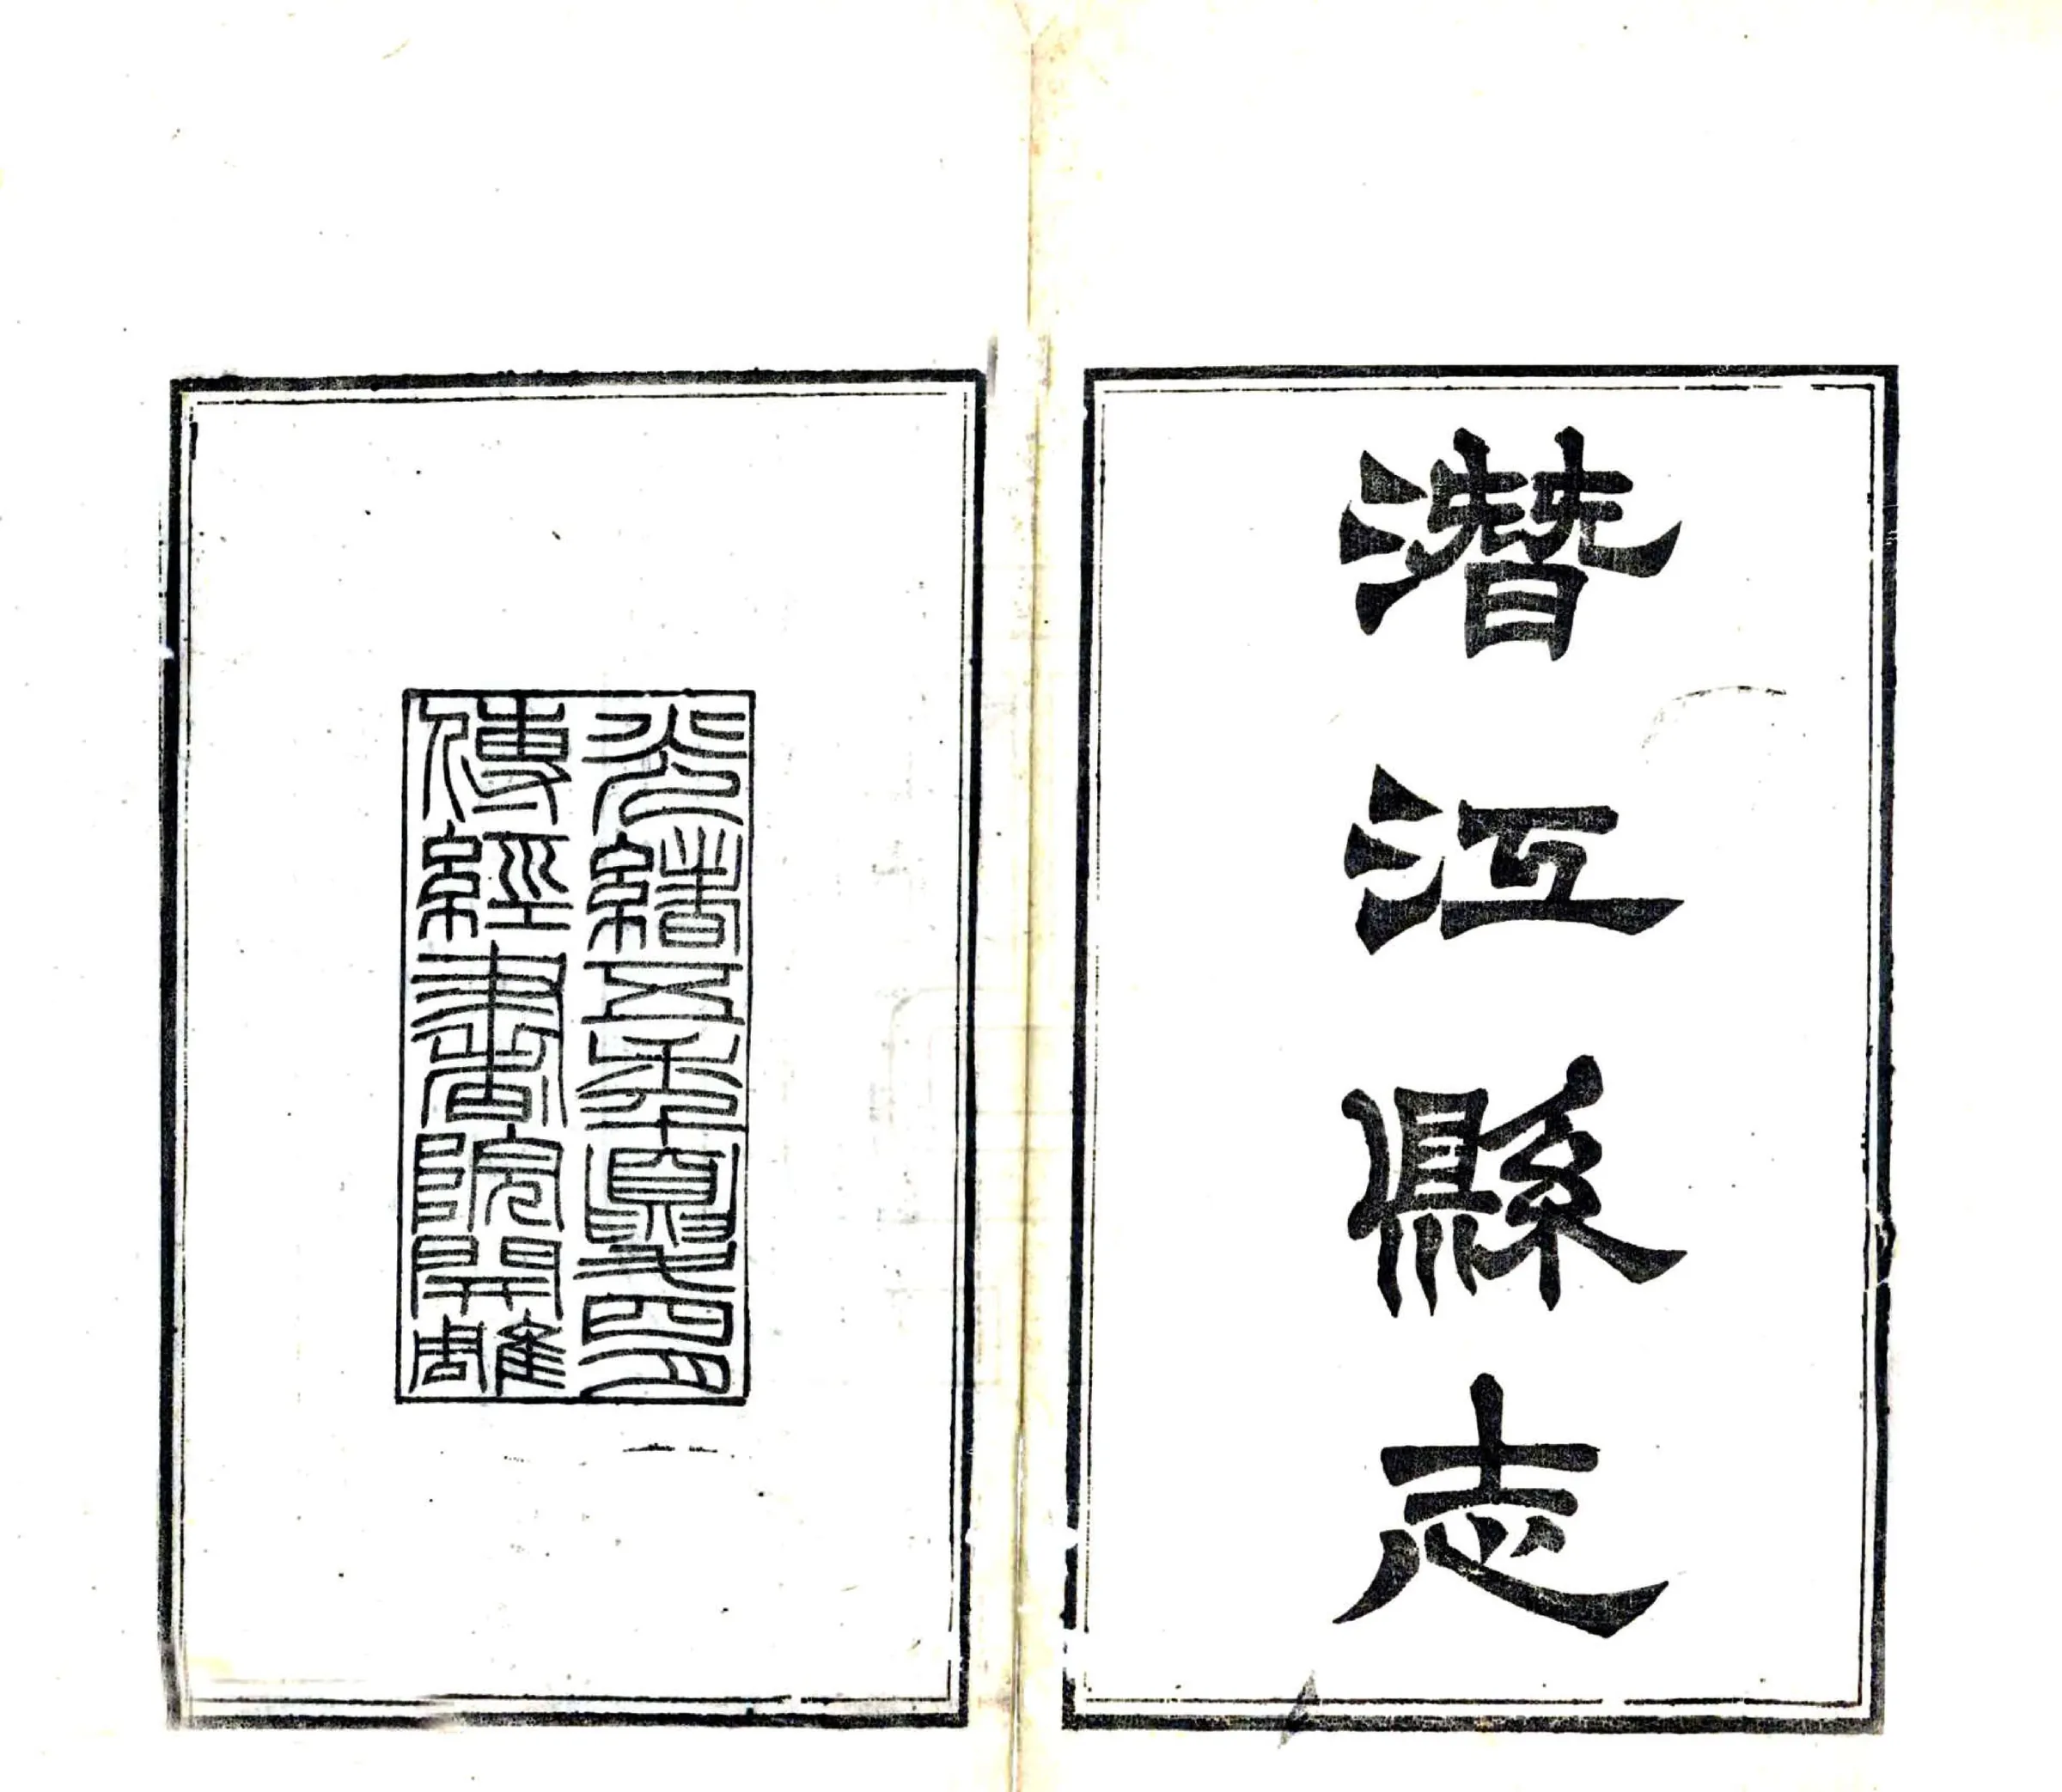 潛江縣志
光緒五年夏四月
傳經書院開雕